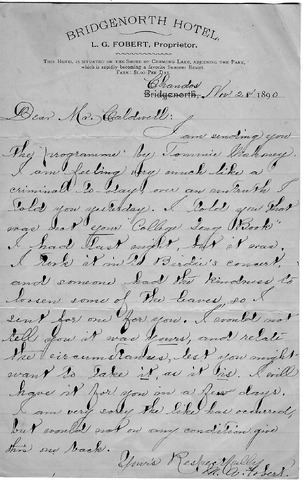 BRIDGENORTH HOTEL,
L. G. FOBERT, Proprietor.
THIS HOTEL IS SITUATED ON THE SHORE OF CHEMONG LAKE, ADJOINING THE PARK,
which is rapidly becoming a favorite Summer Resort.
TERMS: $1.00 PER DAY.
Chandos
Bridgenorth, Nov 28 1890
Dear Mr. Caldwell:
I am sending you
the programme by Tommie
I am feeling very much like a
criminal to day over an untruth I
told you yesterday. I told you that
was not your College Song Book
I had last night, but it was.
I took it into Birdie's concert,
and someone had the kindness to
loosen some of the leaves, so I
sent for one for you. I would not
tell you it was yours, and relate
the circumstances, lest you might
want to take it, as it is. I will
have it for you in a few days.
I am very sorry the like has occurred,
but would not on any condition give
this one back.
Yours Respectfully
Fobert.